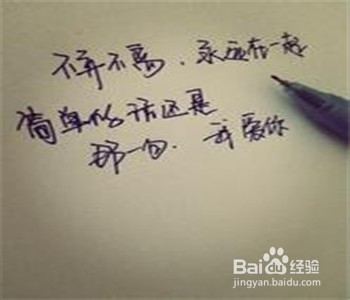 不弃不离．永远在一起
简单的话还是
那一句．我爱你
Baidu经验
jingyan.baidu.com